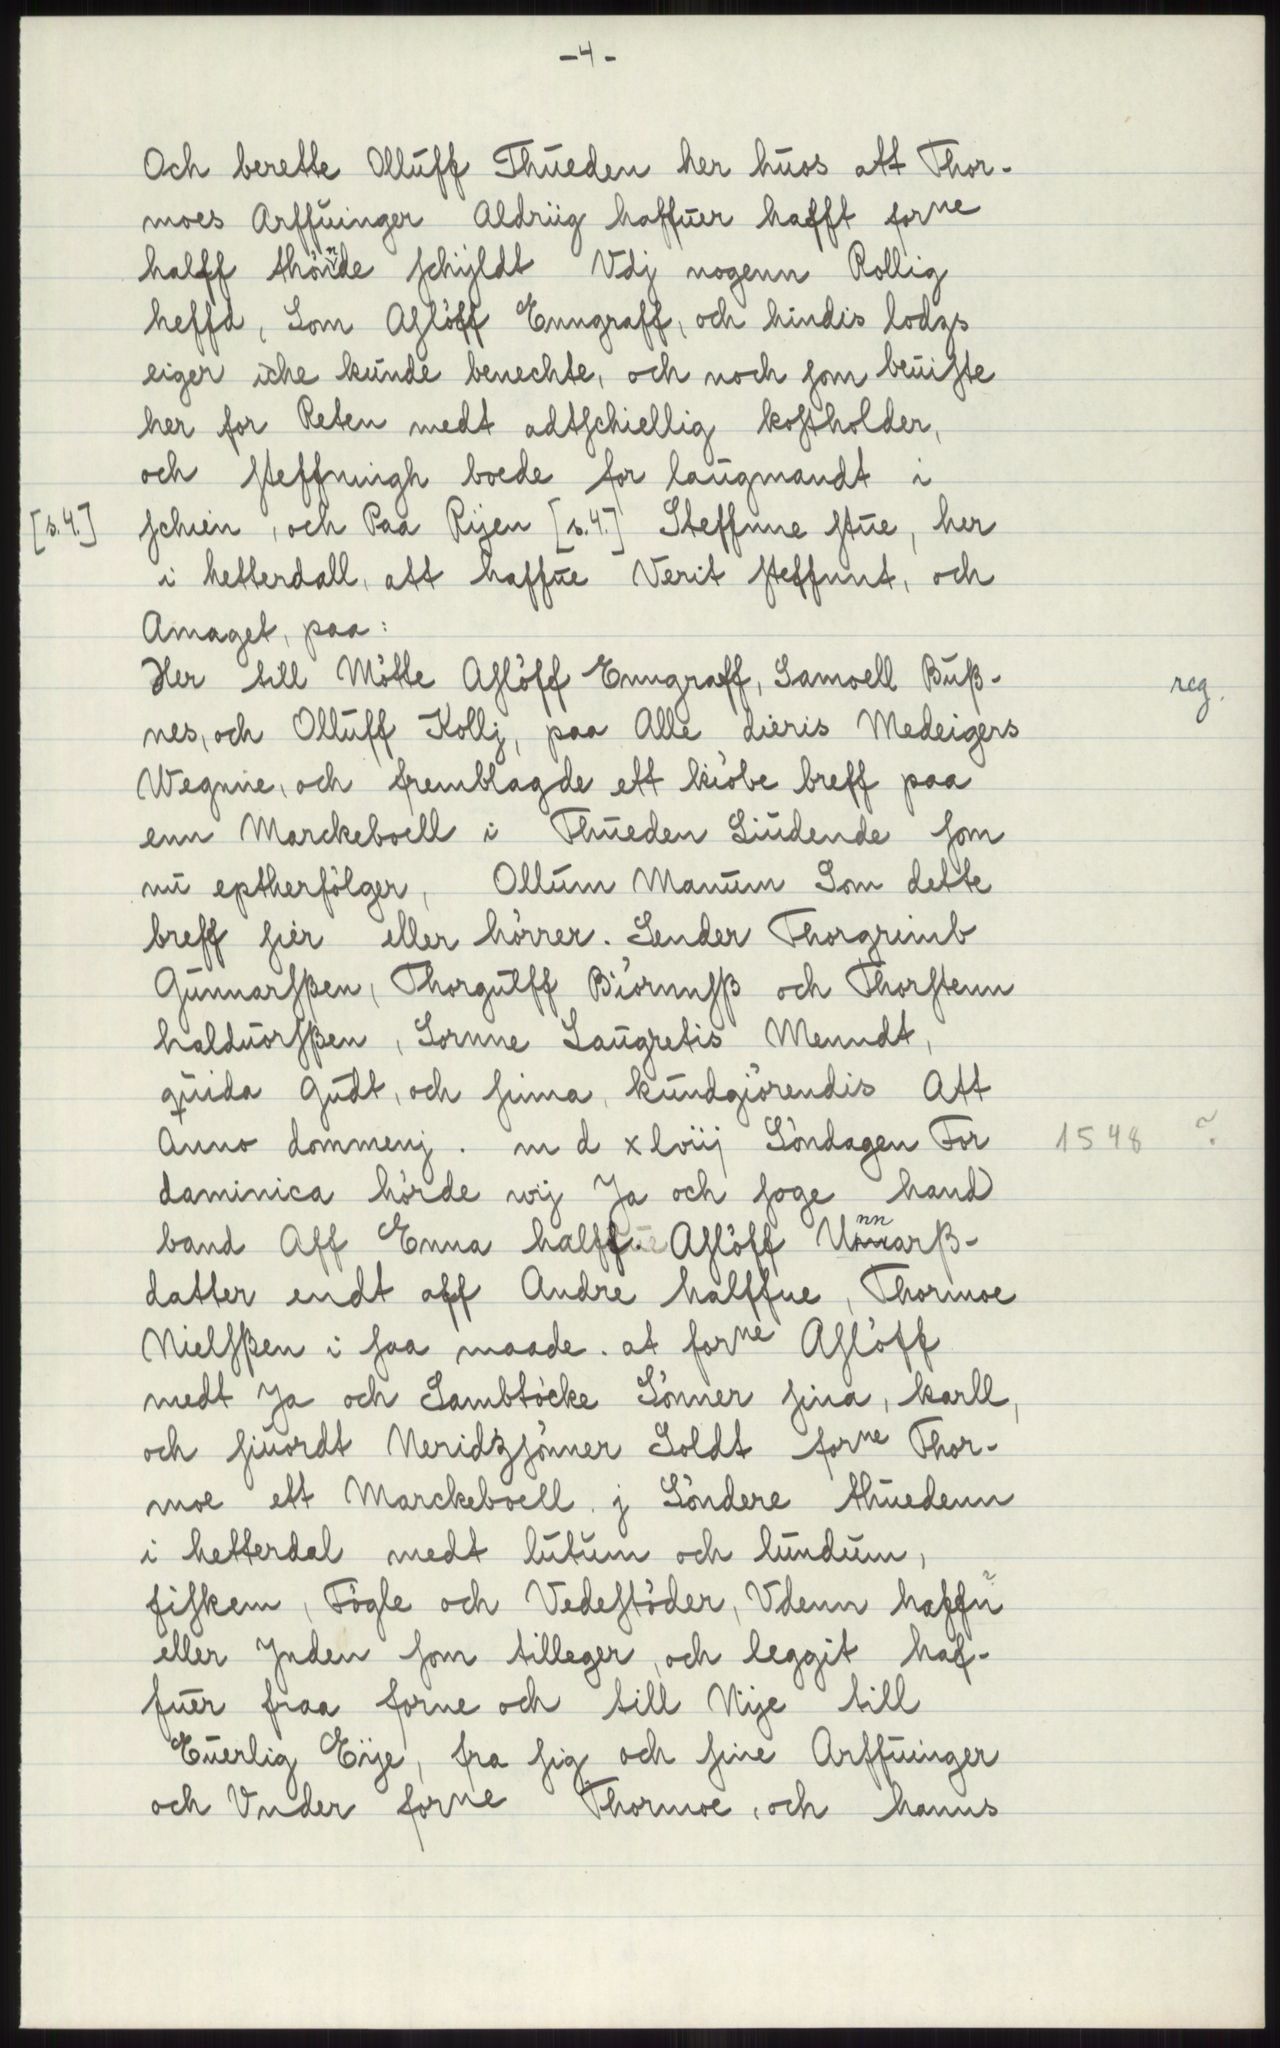 -4-
Och berette Olluff Thueden her huos att Thor-
moes Arffuinger Aldriig haffuer hafft forne
halff thönde schyldt Vdj nogenn Rollig
heffd, Som Aslöff Enngraff, och hindis lodzs
eiger iche kunde benechte, och noch som beuiste
her for Reten medt adtschiellig kostholder,
och steffningh boede for laugmandt i
[s.4.] schien, och Paa Rijen [s.4.] Steffnne stue, her
i hetterdall, att haffue Verit steffnnt, och
Amaget, paa:
Her till Mötte Aslöff Enngraff, Samoell Buß- reg.
nes, och Olluff Kollj, paa Alle dieris Medeigers
Wegnne, och fremblagde ett kiöbe breff paa
enn Marckeboell i Thueden Liudende som
nu eptherfölger, Ollum Manum Som dette
breff sier eller hörrer. Sender Thorgrimb
Gunnarsßen, Thorgulff Biörnnsß och Thorstenn
halduorsßen, Sornne Laugretis Menndt,
quida Gudt, och sinna, kundgiörendis Att
Anno dommenj. m d xlviij Söndagen For 1548 ?
daminica hörde wij Ja och soge hand
band Aff Enna halff. Aslöff Unnarß-
datter endt aff Andre halffue, Thormoe
Nielsßen i saa maade. at forne Aslöff
medt Ja och Sambtöcke Sönner sina, karll,
och siuordt Neridzsönner Soldt forne Thor-
moe ett Marckeboell j Söndere thuedenn
i hetterdal medt lutum och lundum,
fiskem, Fögle och Vedestöder, Vdenn haffn
eller Jnden som tilleger, och leggit haf-
fuer fraa forne och till Nije till
Euerlig Eije, fra sig och sine Arffuinger
och Vnder forne Thormoe, och hanns